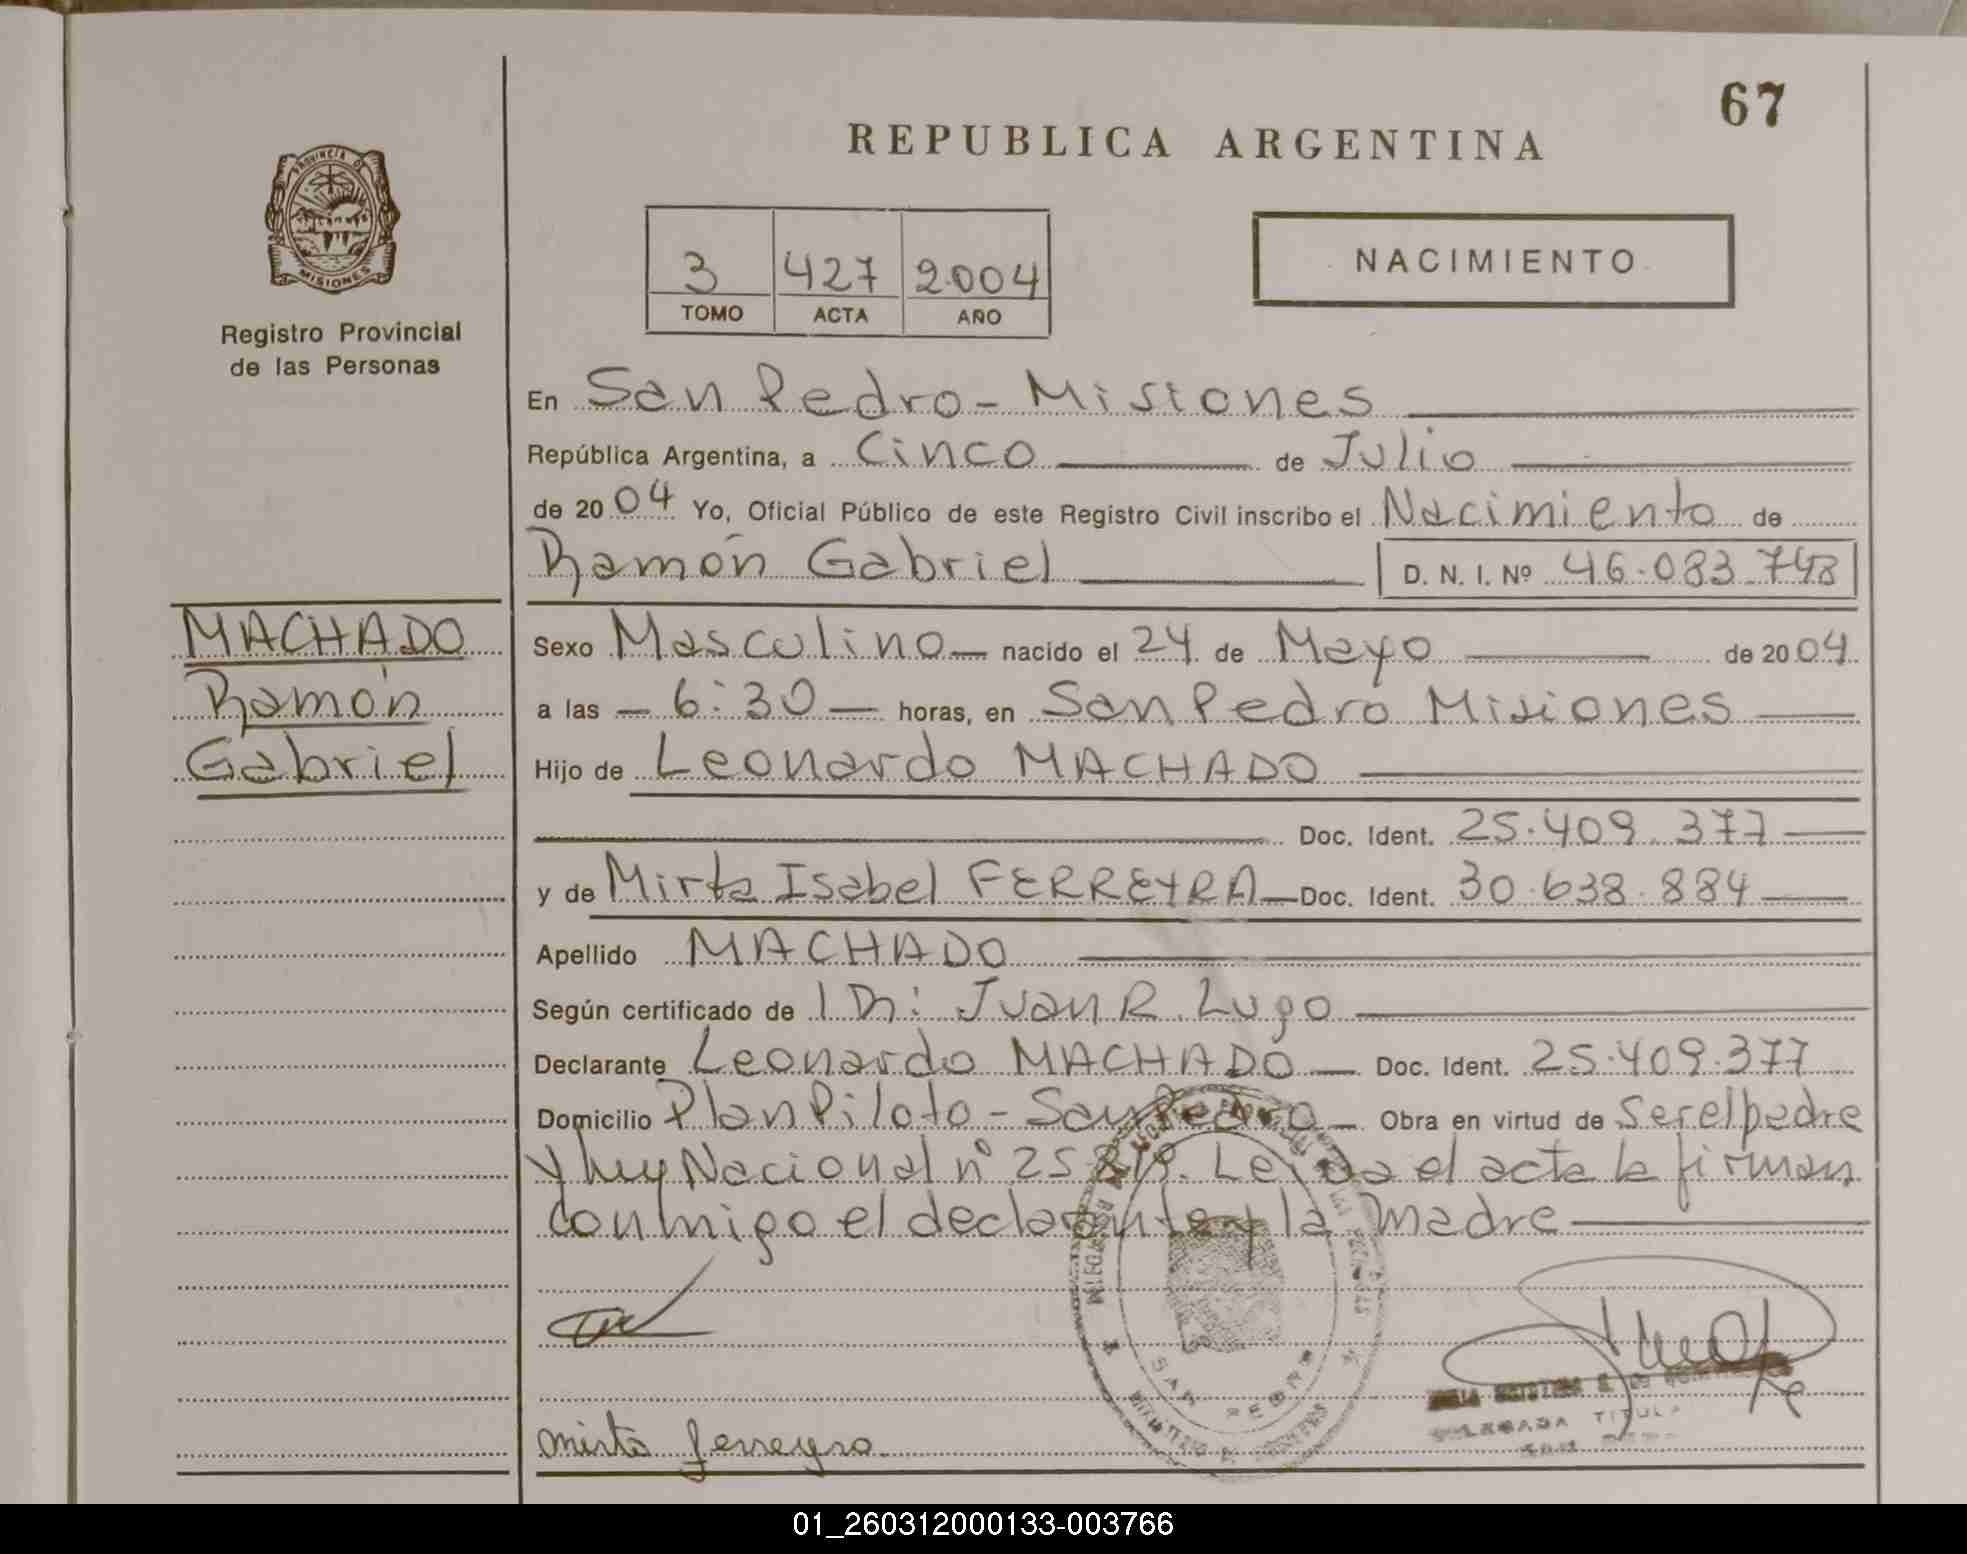 67
REPUBLICA ARGENTINA
PROVINCIA DE
MISIONES
Registro Provincial
de las Personas
3 427 2.004
TOMO ACTA AÑO
NACIMIENTO
En San Pedro - Misiones
República Argentina, a Cinco de Julio
de 2004 Yo, Oficial Público de este Registro Civil inscribo el Nacimiento de
Ramón Gabriel D. N. I. Nº 46.083.748
MACHADO
Ramón
Gabriel
Sexo Masculino nacido el 24 de Mayo de 2004
a las 6:30 horas, en San Pedro Misiones
Hijo de Leonardo MACHADO
Doc. Ident. 25.409.377
y de Mirta Isabel FERREYRA Doc. Ident. 30.638.884
Apellido MACHADO
Según certificado de Juan R. Lugo
Declarante Leonardo MACHADO Doc. Ident. 25.409.377
Domicilio Plan Piloto - San Pedro Obra en virtud de Ser el padre
y Ley Nacional nº 25.819. Leida el acta la firman
conmigo el declarante y la madre
SAN PEDRO
mirta ferreyra
DELEGADA TITULAR
01_260312000133-003766